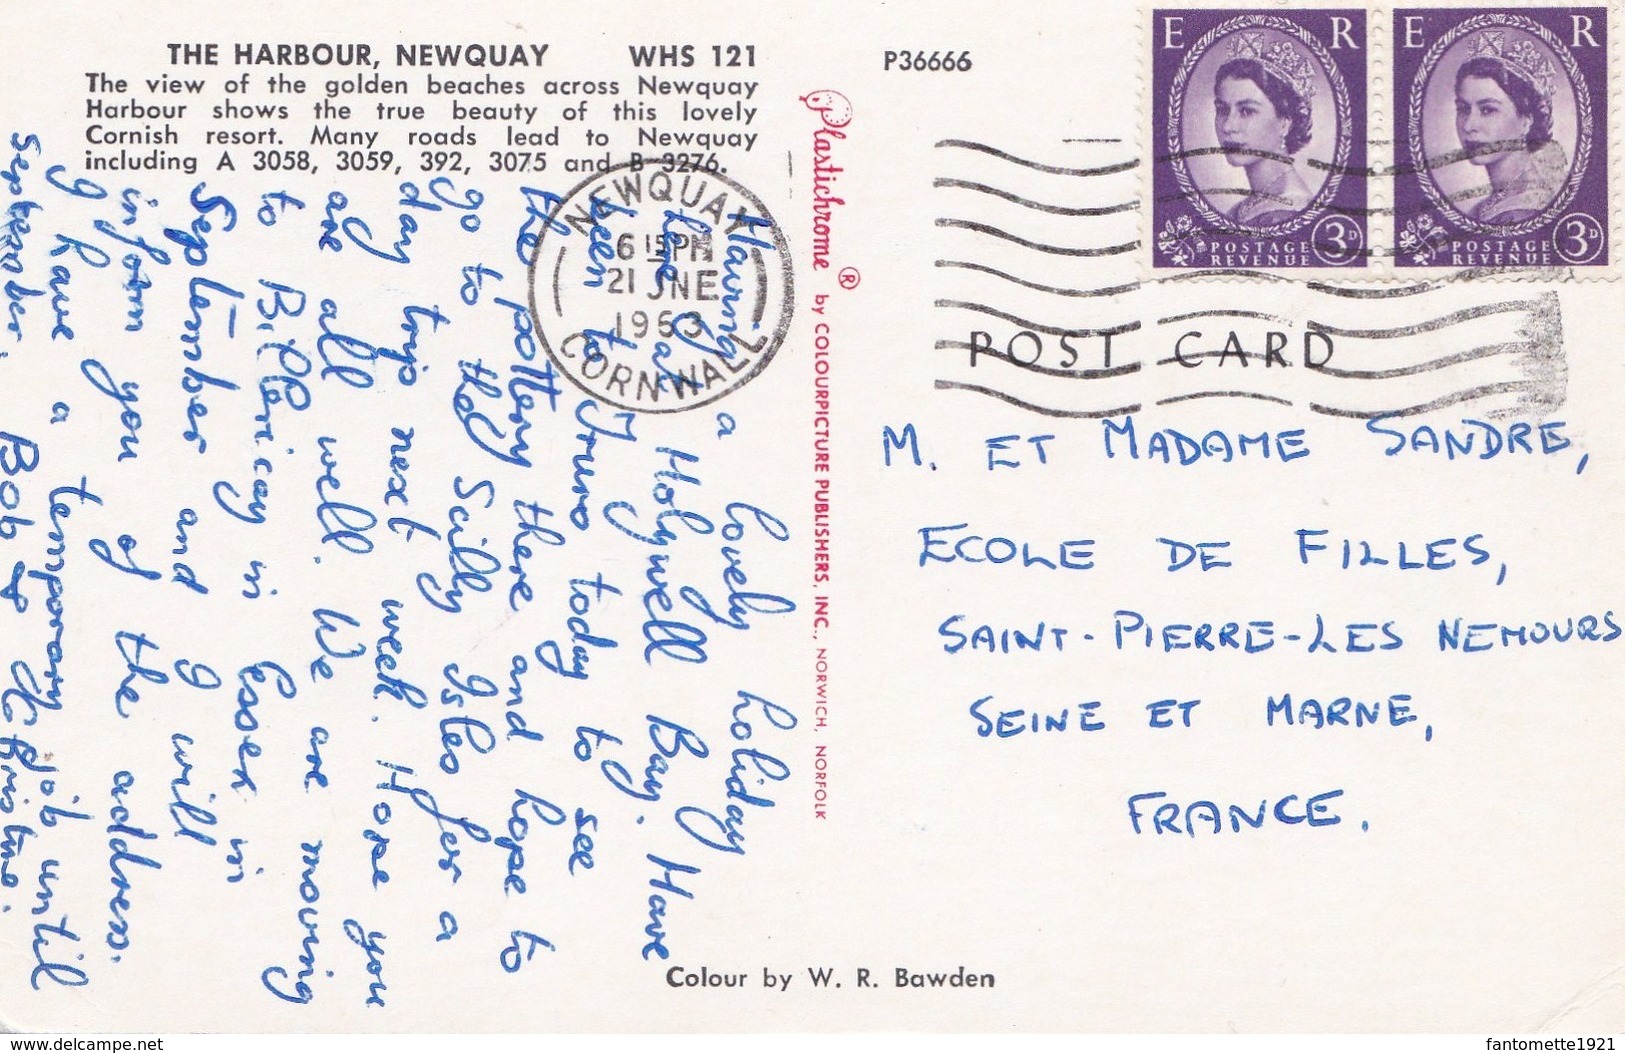 THE HARBOUR, NEWQUAY WHS 121
The view of the golden beaches across Newquay
Harbour shows the true beauty of this lovely
Cornish resort. Many roads lead to Newquay
including A 3058, 3059, 392, 3075 and B 3276.
Having a lovely holiday
here at Holywell Bay. Have
been to Truro today to see
the pottery there and hope to
go to the Scilly Isles for a
day trip next week. Hope you
are all well. We are moving
to Billericay in Essex in
September and I will
inform you of the address.
I have a temporary job until
September. Bob & Christine.
NEWQUAY
6 15 PM
21 JNE
1963
CORNWALL
Plastichrome ® by COLOURPICTURE PUBLISHERS, INC., NORWICH, NORFOLK
P36666
E R
POSTAGE
REVENUE
3D
E R
POSTAGE
REVENUE
3D
POST CARD
M. ET MADAME SANDRE,
ECOLE DE FILLES,
SAINT-PIERRE-LES NEMOURS
SEINE ET MARNE,
FRANCE.
Colour by W. R. Bawden
www.delcampe.net
fantomette1921